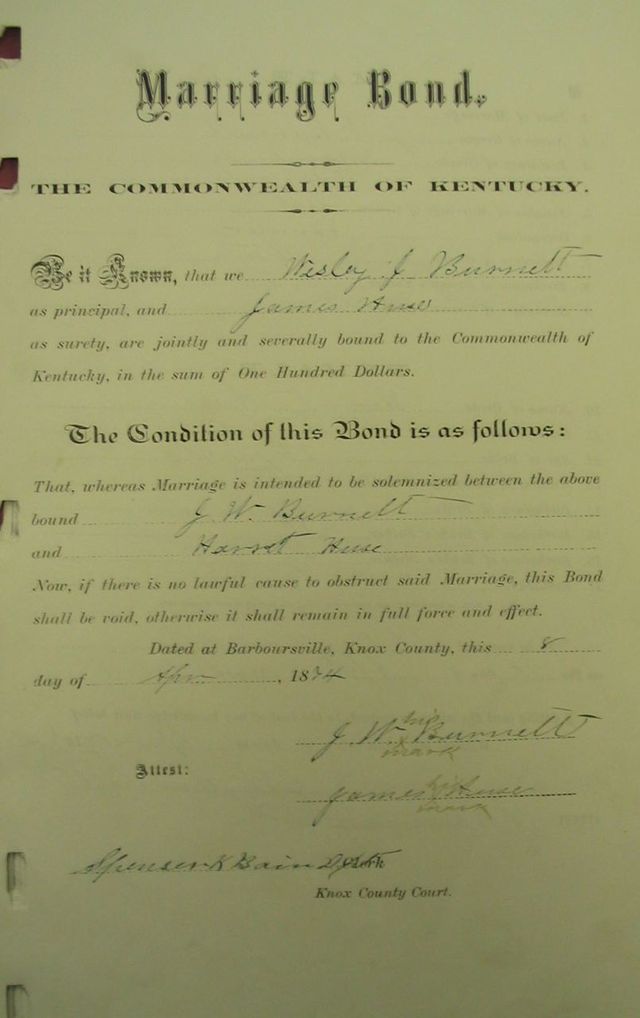 Marriage Bond.
THE COMMONWEALTH OF KENTUCKY.
Be it Known, that we Wesley J Burnett
as principal, and James Huse
as surety, are jointly and severally bound to the Commonwealth of
Kentucky, in the sum of One Hundred Dollars.
The Condition of this Bond is as follows:
That, whereas Marriage is intended to be solemnized between the above
bound J. W. Burnett
and Harret Huse
Now, if there is no lawful cause to obstruct said Marriage, this Bond
shall be void, otherwise it shall remain in full force and effect.
Dated at Barboursville, Knox County, this 8
day of Apr, 18
his
J. W. Burnett
mark
Attest:
his
James Huse
mark
Spenser K Bain D Clerk
Knox County Court.